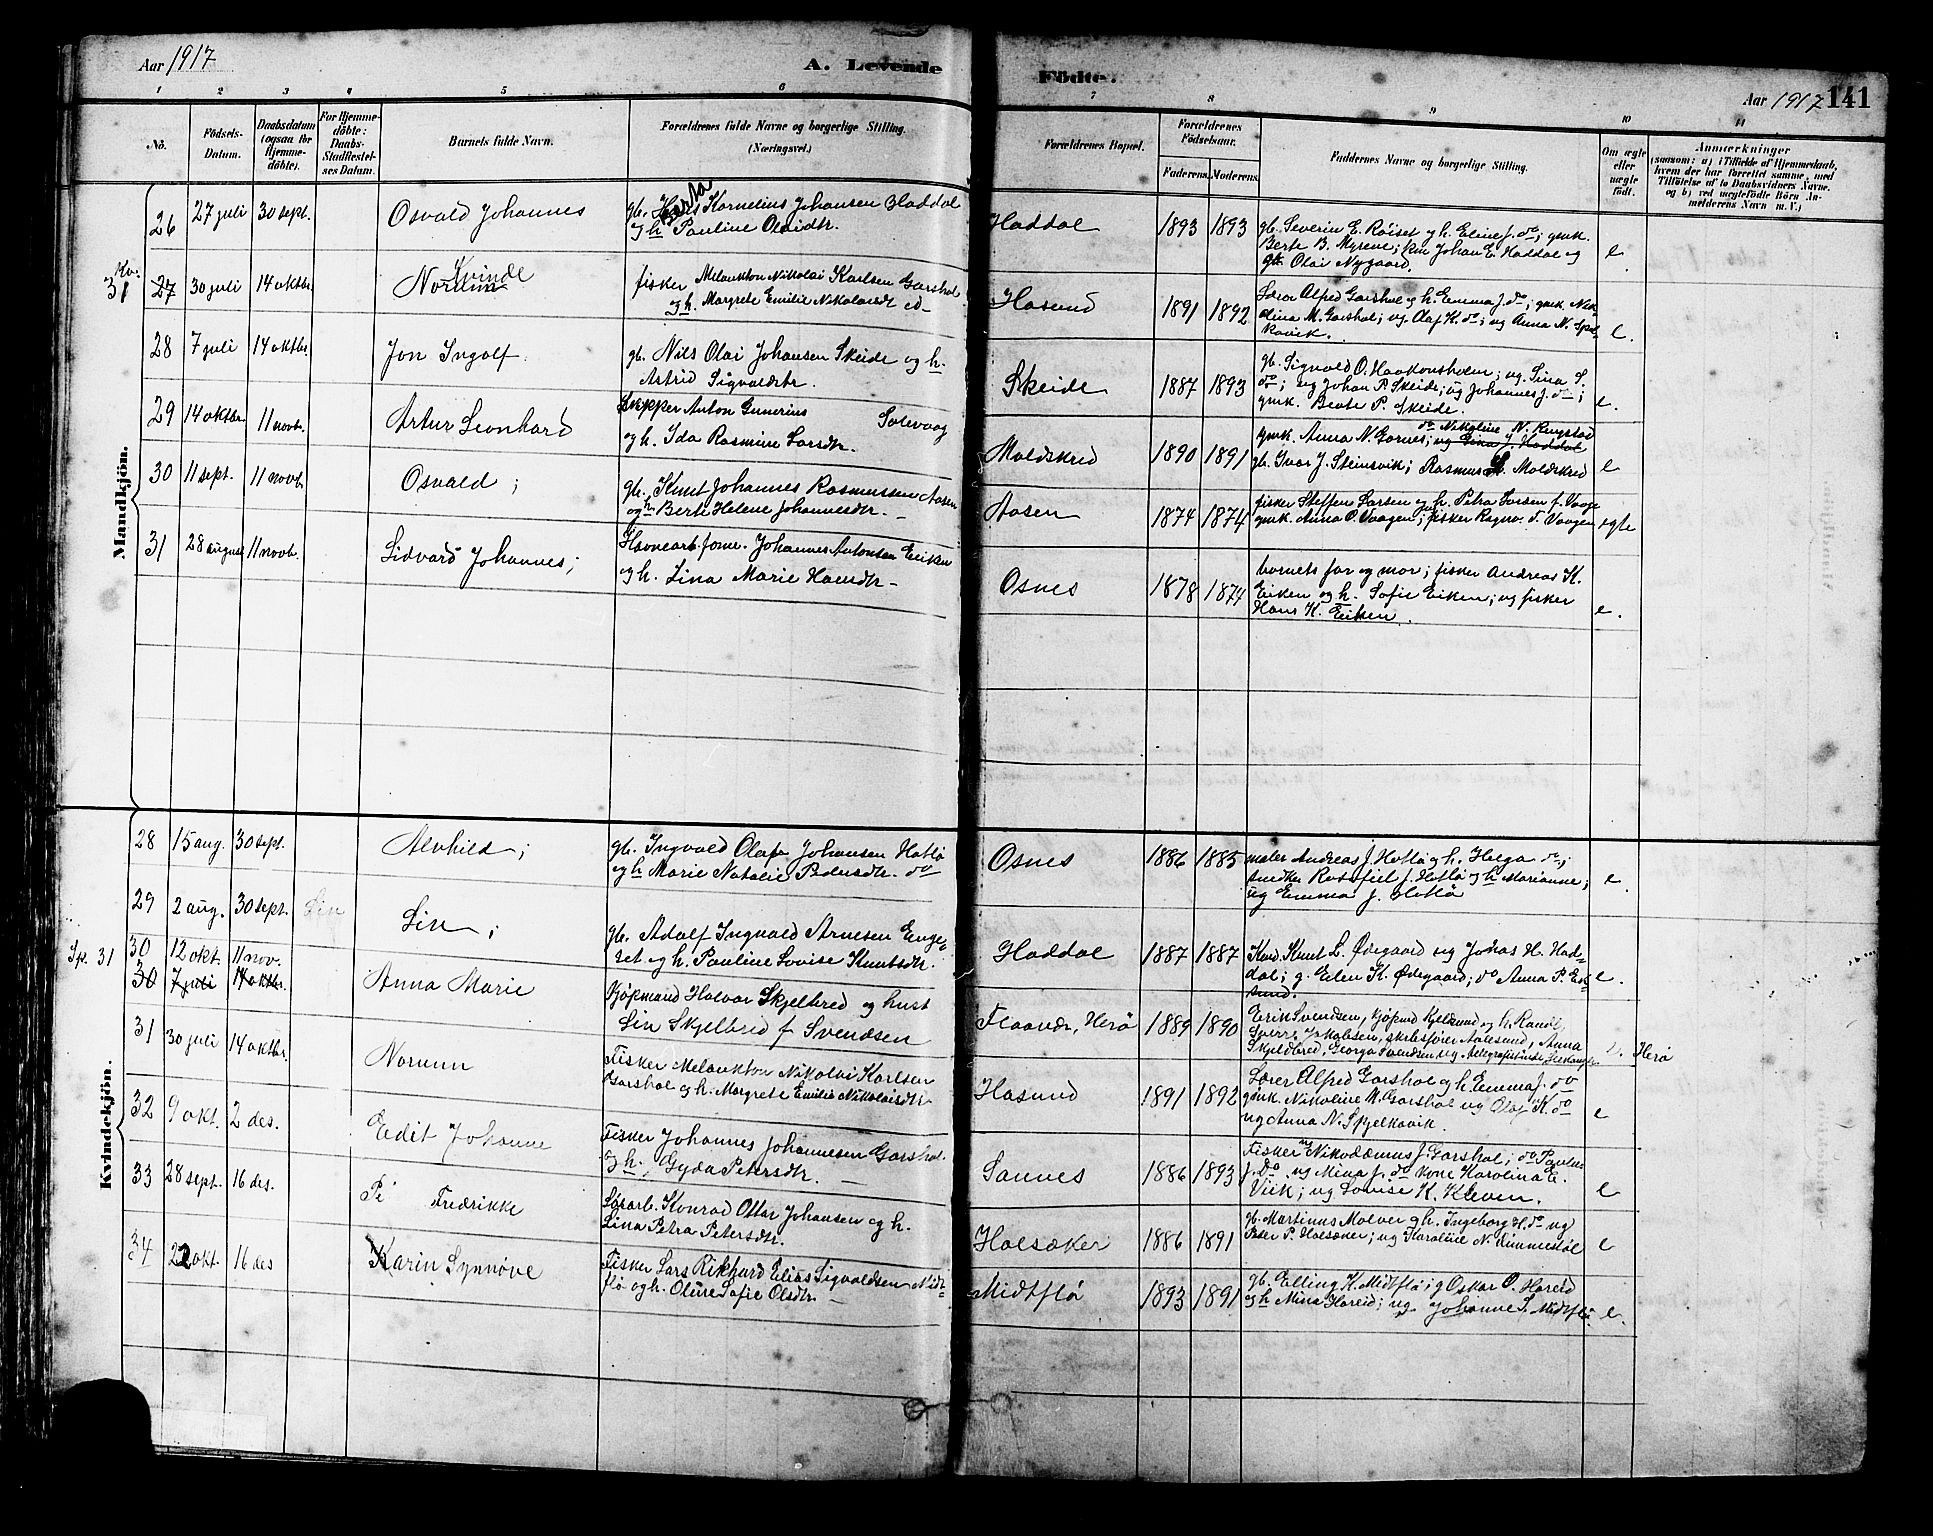 Aar 1917
A. Levende Födte.
Aar 1917 141
1 2 3 4 5 6 7 8 9 10 11
No.
Födsels-Datum.
Daabsdatum (ogsaa for Hjemmedöbte).
For Hjemmedöbte: Daabs-Stadfestelses Datum.
Barnets fulde Navn.
Forældrenes fulde Navne og borgerlige Stilling. (Næringsvei.)
Forældrenes Bopæl.
Forældrenes Födselsaar.
Faderens. Moderens.
Faddernes Navne og borgerlige Stilling.
Om ægte eller uægte födt.
Anmærkninger
(saasom: a) i Tilfælde af Hjemmedaab, hvem der har forrettet samme, med Tilföielse af to Daabsvidners Navne, og b) ved uægtefödte Börn Anmelderens Navn m. V.)
Mandkjön.
26 27 juli 30 sept. Osvald Johannes
gb. Kornelius Johansen Haddal
og h Pauline Olaidtr.
Haddal 1893 1893
gb. Severin E. Röiset og h. Eline J. do; gmk.
Berte B. Myrene; Johan E. Haddal og
Olai Nygaard.
e.
Kv. 31
27 30 juli 14 oktbr. Kvinde
Norunn
fisker Melankton Nikolai Karlsen Garshol
og h. Margrete Emilie Nikolaisdt
Hasund 1891 1892
Lærer Alfred Garshol og h. Emma J. do; gmk. Nik
oline M. Garshol; ug. Olaf K. do; ug Anna N. Spjel
kavik.
e.
28 7 juli 14 oktbr. Jon Ingolf
gb. Nils Olai Johansen Skeide og h.
Astrid Sigvaldsdtr.
Skeide 1887 1893
gb. Sigvald O. Haakonsholm; ug. Lina S.
do; ug Johan P. Skeide; ug Johannes J. do;
gmk. Berte P. Skeide.
e.
29 14 oktbr. 11 novb. Artur Leonhard
Skipper Anton Gunerius Solevaag
og h. Ida Rasmine Larsdtr.
Moldskred 1890 1891
do Nikoline N. Ringstad
gmk. Anna N. Garnes; ug Gina J. Haddal
gb. Ivar J. Steinsvik; Rasmus Moldskred
e
30 11 sept. 11 novb. Osvald;
gb. Knut Johannes Rasmussen Aasen
og h Berte Helene Johannesdtr.
Aasen 1874 1874
fisker Steffen Larsen og h. Petra Larsen f. Vaage
gmk. Anna O. Vaagen; fisker Ragnv. T. Vaagen
egte
31 28 august 11 novb. Sidvard Johannes;
Havnearb.form. Johannes Antonsen Eiken
og h. Lina Marie Hansdtr
Osnes 1878 1874
barnets far og mor; fisker Andreas K.
Eiken og h. Sofie Eiken; ug fisker
Hans K. Eiken.
e.
Kvindekjön.
28 15 aug. 30 sept. Alvhild;
gb. Ingvald Olaf Johansen Hatlö
og h Marie Natalie Pedersdtr. do
Osnes 1886 1885
maler Andreas J. Hatlö og h. Helga do;
snedker Rotefiel J. Hatlö og h Marianne;
ug Emma J. Hatlö
e.
29 2 aug. 30 sept. Liv
Liv;
gb. Adolf Ingvald Arnesen Enge-
set og h. Pauline Lovise Knutsdtr.
Haddal 1887 1887
Knut L. Ödegaard ug Johas H. Had-
dal; g. Elen K. Ödegaard; do Anna P. Ek
sund.
e.
Sp. 31
30 12 okt. 11 nov.
30 7 juli 14 oktbr. Anna Marie
Kjöpmand Halvar Skjelbred og hust
Liv Skjelbred f Svendsen
Flaavær, Herö 1889 1890
Erik Svendsen, kjöpmd Kjeldsund og h. Randi,
Sverre Jakobsen, skibsförer Aalesund, Anna
Skjeldbred, Georga Svendsen ug Telegrafistinde
e. Herö
31 30 juli 14 oktbr. Norunn
Fisker Melankton Nikolai Karlsen
Garshol og h. Margrete Emilie Nikolaisdtr
Hasund 1891 1892
Lærer Alfred Garshol og h. Emma J. do
gmk. Nikoline M. Garshol ug Olaf K. do
ug Anna N. Spjelkavik.
e
32 9 okt. 2 des. Edit Johanne
Fisker Johannes Johannesen Garshol
og h. Gyda Petersdtr.
Sannes 1886 1893
Fisker Nikodæmus J Garshol; do Paulus
J. do, ug Mina J. do kone Karolina E.
Viik; ug Lovise K. Kleven.
e
33 28 sept. 16 des. Pi Fredrikke
Lösarb. Konrad Ottar Johansen og h.
Lina Petra Petersdtr.
Holsæker 1886 1891
gb. Martinus Molver og h. Ingeborg H. do ug
Peter P. Holsæker; ug Karoline N. Dimmestöl
e
34 22 okt. 16 des Karin Synnöve
Fisker Lars Rikhard Elias Sigvaldsen Midt-
flö og h. Oline Sofie Olsdtr.
Midtflö 1893 1891
gb. Elling K. Midtflö; g Oskar O. Hareid
og h Mina Hareid; ug Johanne S. Midtflö
e.